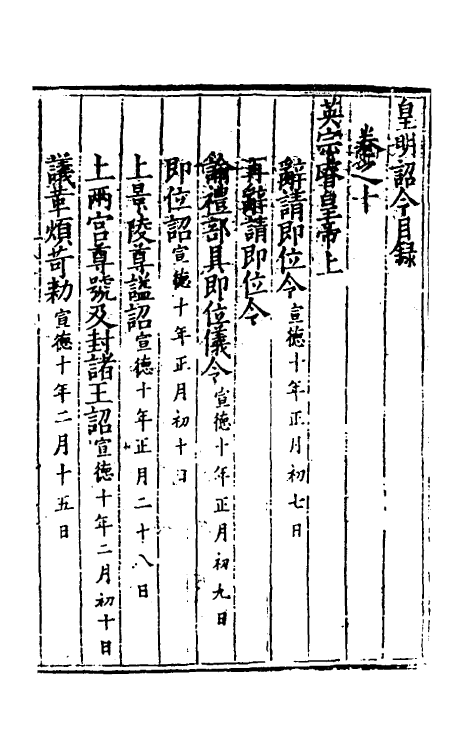 皇明詔令目錄
卷之十
英宗睿皇帝上
辭請即位令宣德十年正月初七日
再辭請即位令
諭禮部具即位儀令宣德十年正月初九日
即位詔宣德十年正月初十日
上景陵尊謚詔宣德十年正月二十八日
上兩宮尊號及封諸王詔宣德十年二月初十日
議革煩苛勅宣德十年二月十五日